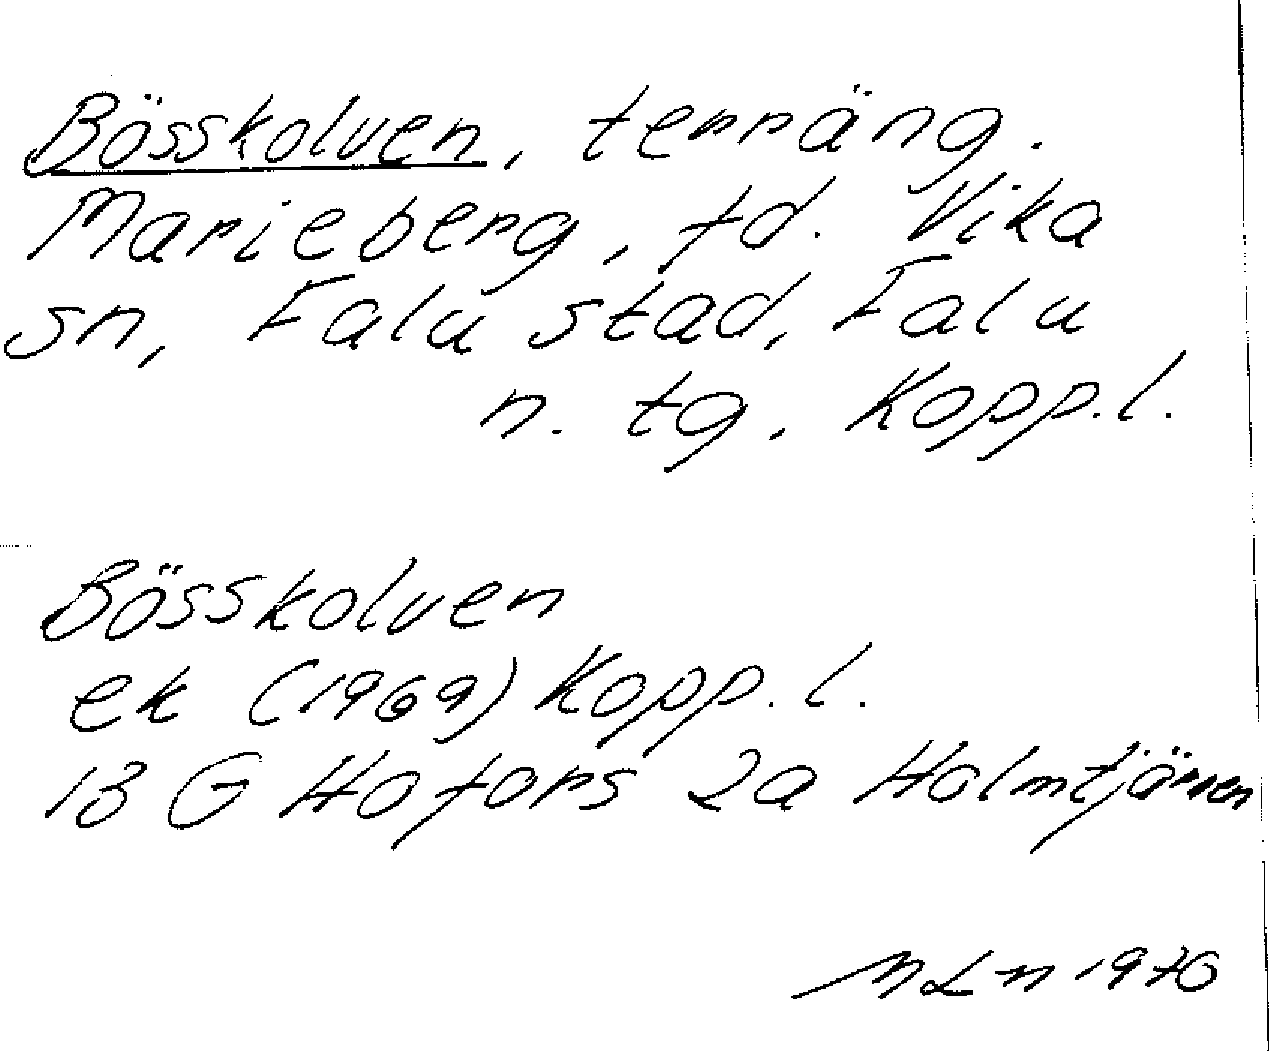 Bösskolven, terräng.
Marieberg, fd. Vika
sn, Falu stad, Falu
n. tg. Kopp.l.
Bösskolven
ek (1969) Kopp.l.
13 G Hofors 2a Holmtjärnen
MLn 1976